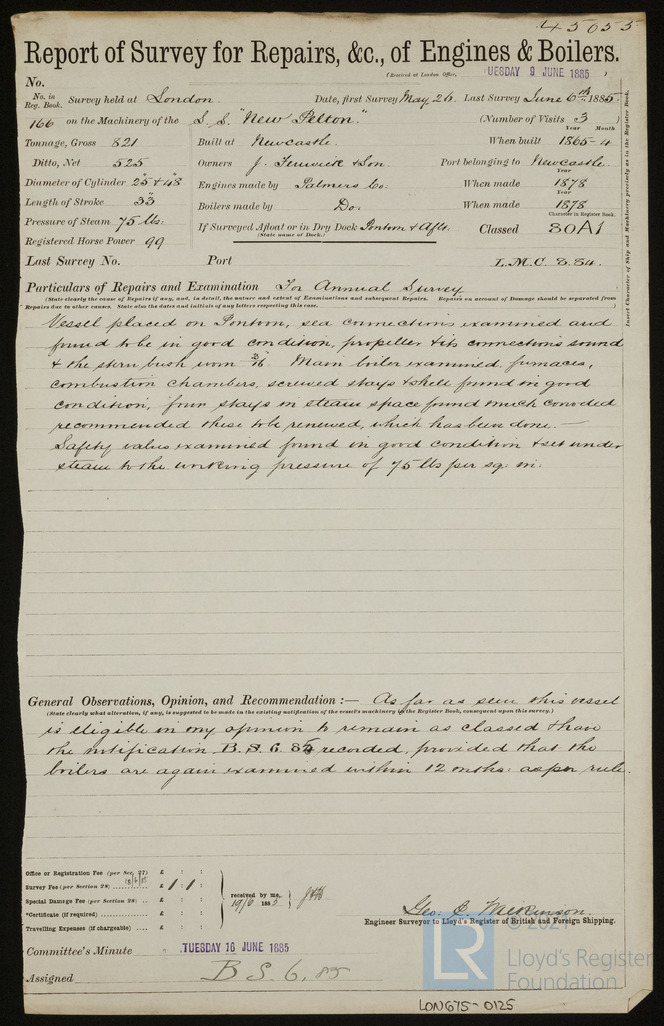 45055
Report of Survey for Repairs, &c., of Engines & Boilers.
(Received at London Office, TUESDAY 9 JUNE 1885 )
No.
No. in Reg. Book. Survey held at London. Date, first Survey May 26 Last Survey June 6th 1885.
166 on the Machinery of the S.S. "New Pelton." (Number of Visits 3 )
Tonnage, Gross 821 Built at Newcastle. When built Year Month 1865-4
Ditto, Net 525 Owners J. Fenwick & Son. Port belonging to Newcastle.
Diameter of Cylinder 25" & 48" Engines made by Palmers Co. When made Year 1878
Length of Stroke 33" Boilers made by Do. When made Year 1878
Pressure of Steam 75 lbs. If Surveyed Afloat or in Dry Dock Pontoon & Aflt. (State name of Dock.) Classed Character in Register Book. 80A1
Registered Horse Power 99
Last Survey No. Port L.M.C. 8.84.
Insert Character of Ship and Machinery precisely as in the Register Book.
Particulars of Repairs and Examination For Annual Survey
(State clearly the cause of Repairs if any, and, in detail, the nature and extent of Examinations and subsequent Repairs. Repairs on account of Damage should be separated from
Repairs due to other causes. State also the dates and initials of any letters respecting this case. )
Vessel placed on Pontoon, sea connections examined and
found to be in good condition, propeller & its connections sound
& the stern bush worn 3/16. Main boiler examined, furnaces,
combustion chambers, screwed stays & shell found in good
condition, four stays in steam space found much corroded
recommended these to be renewed, which has been done. —
Safety valves examined found in good condition & set under
steam to the working pressure of 75 lbs per sq: in:
General Observations, Opinion, and Recommendation :— As far as seen this vessel
(State clearly what alteration, if any, is suggested to be made in the existing notification of the vessel's machinery in the Register Book, consequent upon this survey.)
is eligible in my opinion to remain as classed & have
the notification B.S. 6. 85 recorded, provided that the
boilers are again examined within 12 mths: as per rule.
Office or Registration Fee (per Sec. 27) £ : :
18/6/85
Survey Fee (per Section 28) £ 1 : 1 :
Special Damage Fee (per Section 28) £ : :
*Certificate (if required) £ : :
Travelling Expenses (if chargeable) £ : :
received by me,
19/6 1885
Geo. C. Milkinson.
Engineer Surveyor to Lloyd's Register of British and Foreign Shipping.
Committee's Minute TUESDAY 16 JUNE 1885
Assigned B S. 6. 85
© 2021
LR
Lloyd's Register
Foundation
LON675-0125